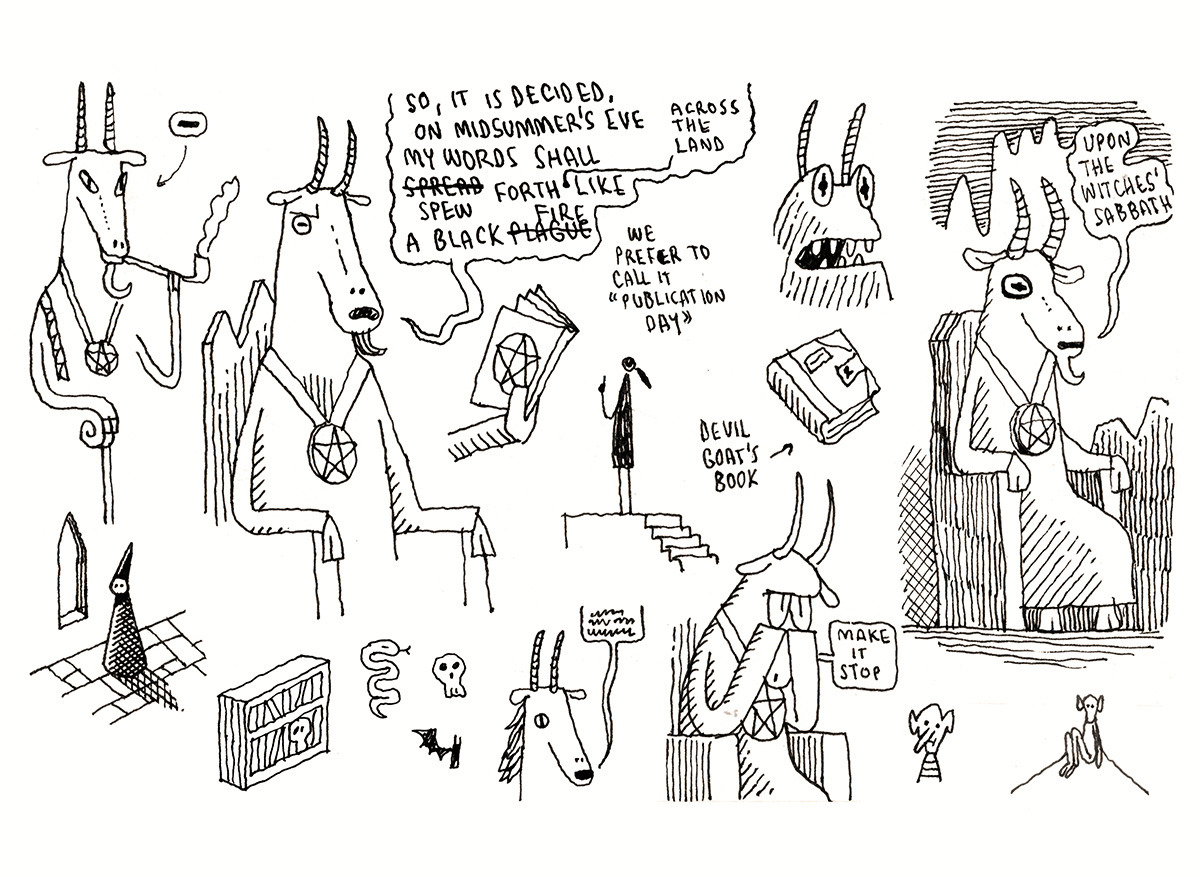 SO, IT IS DECIDED,
ON MIDSUMMER'S EVE
MY WORDS SHALL
SPREAD FORTH LIKE
SPEW FIRE
A BLACK PLAGUE
ACROSS
THE
LAND
WE
PREFER TO
CALL IT
"PUBLICATION
DAY"
UPON
THE
WITCHES'
SABBATH
DEVIL
GOAT'S
BOOK
MAKE
IT
STOP